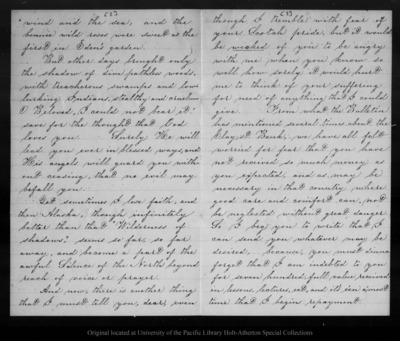 wind and the sea, and the
bonnie wild roses were sweet as the
first in Eden's garden.
But other days brought only
the shadow of dim pathless woods,
with treacherous swamps and low
lurking Indians, stealthy and cruel
O Beloved, I could not bear it
save for the thought that God
loves you. Surely He will
lead you ever in blessed ways, and
His angels will guard you with-
out ceasing, that no evil may
befall you.
Yet sometimes I lose faith, and
then Alaska, though infinitely
better than that "Wilderness of
shadows" seems so far, so far
away, and become a part of the
awful Silence of the North, beyond
reach of voice or prayer.
And now, there is another thing
that I must tell you, dear, even
though I tremble with fear of
your Scotch pride, but it would
be wicked of you to be angry
with me when you know so
well how sorely it would hurt
me to think of your suffering
for need of anything that I could
give. From what the Bulletin
has mentioned several times about the
Clay st Bank, we have all felt
worried for fear that you have
not received so much money as
you expected, and as may be
necessary in that country where
good care and comfort can not
be neglected without great danger
So I beg you to write that I
can send you whatever may be
desired, because, you must
forget that I am indebted to you
for seven hundred, full value received
in lectures, and it is
time that I begin repayment.
Original located at University of the Pacific Library Holt-Atherton Special Collections